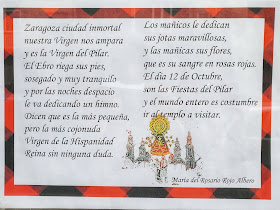 Zaragoza ciudad inmortal
nuestra Virgen nos ampara
y es la Virgen del Pilar.
El Ebro riega sus pies,
sosegado y muy tranquilo
y por las noches despacio
le va dedicando un himno.
Dicen que es la más pequeña,
pero la más cojonuda
Virgen de la Hispanidad
Reina sin ninguna duda.
Los mañicos le dedican
sus jotas maravillosas,
y las mañicas sus flores,
que es su sangre en rosas rojas.
El día 12 de Octubre,
son las Fiestas del Pilar
y el mundo entero es costumbre
ir al templo a visitar.
María del Rosario Rojo Albero